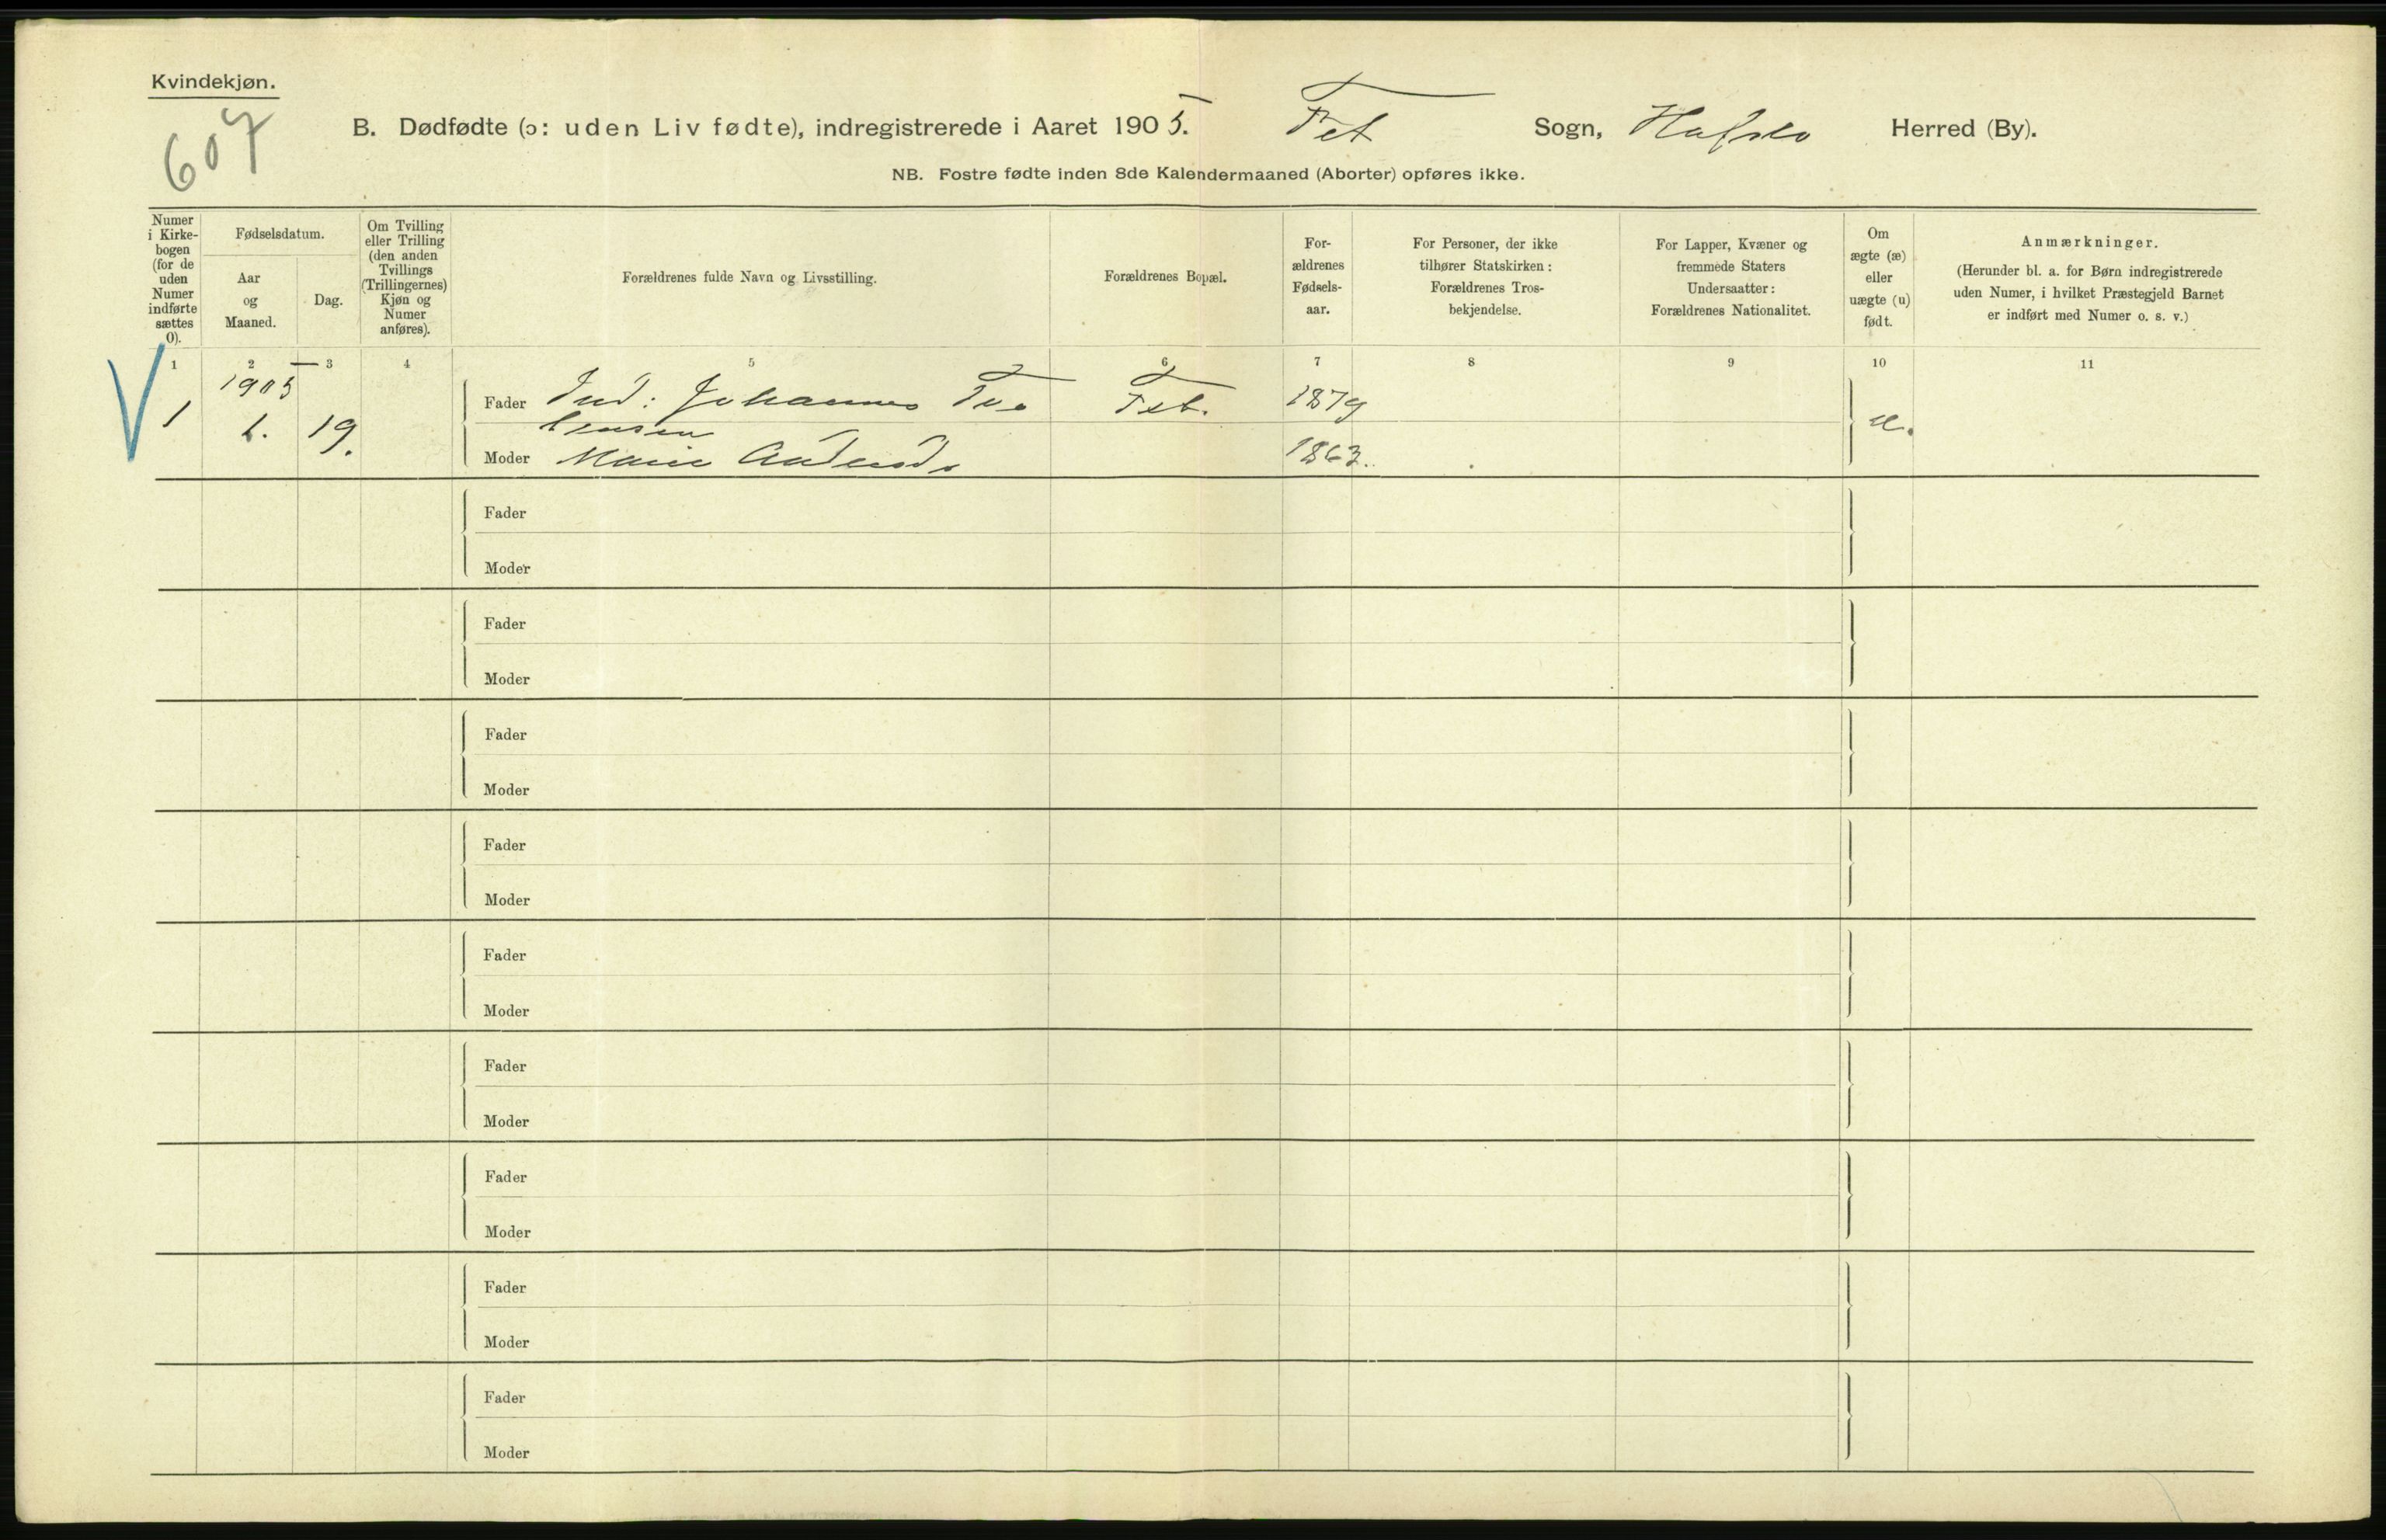 Kvindekjøn.
607
B. Dødfødte (ɔ: uden Liv fødte), indregistrerede i Aaret 1905. Fet Sogn, Hafslo Herred (By).
NB. Fostre fødte inden 8de Kalendermaaned (Aborter) opføres ikke.
Numer
i Kirke-
bogen
(for de
uden
Numer
indførte
sættes
0).
Fødselsdatum.
Aar
og
Maaned.
Dag.
Om Tvilling
eller Trilling
(den anden
Tvillings
(Trillingernes)
Kjøn og
Numer
anføres).
Forældrenes fulde Navn og Livsstilling.
Forældrenes Bopæl.
For-
ældrenes
Fødsels-
aar.
For Personer, der ikke
tilhører Statskirken:
Forældrenes Tros-
bekjendelse.
For Lapper, Kvæner og
fremmede Staters
Undersaatter:
Forældrenes Nationalitet.
Om
ægte (æ)
eller
uægte (u)
født.
Anmærkninger.
(Herunder bl. a. for Børn indregistrerede
uden Numer, i hvilket Præstegjeld Barnet
er indført med Numer o. s. v.)
1 2 3 4 5 6 7 8 9 10 11
1905
1 1. 19.
Fader Ind: Johannes Fet. 1879
Moder Marie 1863.
Fader
Moder
Fader
Moder
Fader
Moder
Fader
Moder
Fader
Moder
Fader
Moder
Fader
Moder
Fader
Moder
Fader
Moder